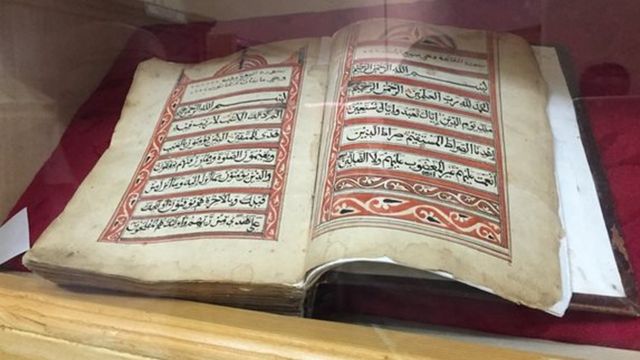 سورة الفاتحة وهي سبع
بسم الله الرحمن الرحيم
الحمد لله رب العلمين الرحمن الرحيم
ملك يوم الدين إياك نعبد وإياك نستعين
إهدنا الصراط المستقيم صراط الذين
أنعمت عليهم غير المغضوب عليهم ولا الضالين
سورة البقرة
وهي مائتان
بسم الله الرحمن الرحيم
الم ذلك الكتب لا ريب فيه
هدى للمتقين الذين يؤمنون بالغيب
ويقيمون الصلوة ومما رزقنهم ينفقون
والذين يؤمنون بما أنزل إليك وما أنزل من
قبلك وبالآخرة هم يوقنون أولئك
على هدى من ربهم وأولئك هم المفلحون